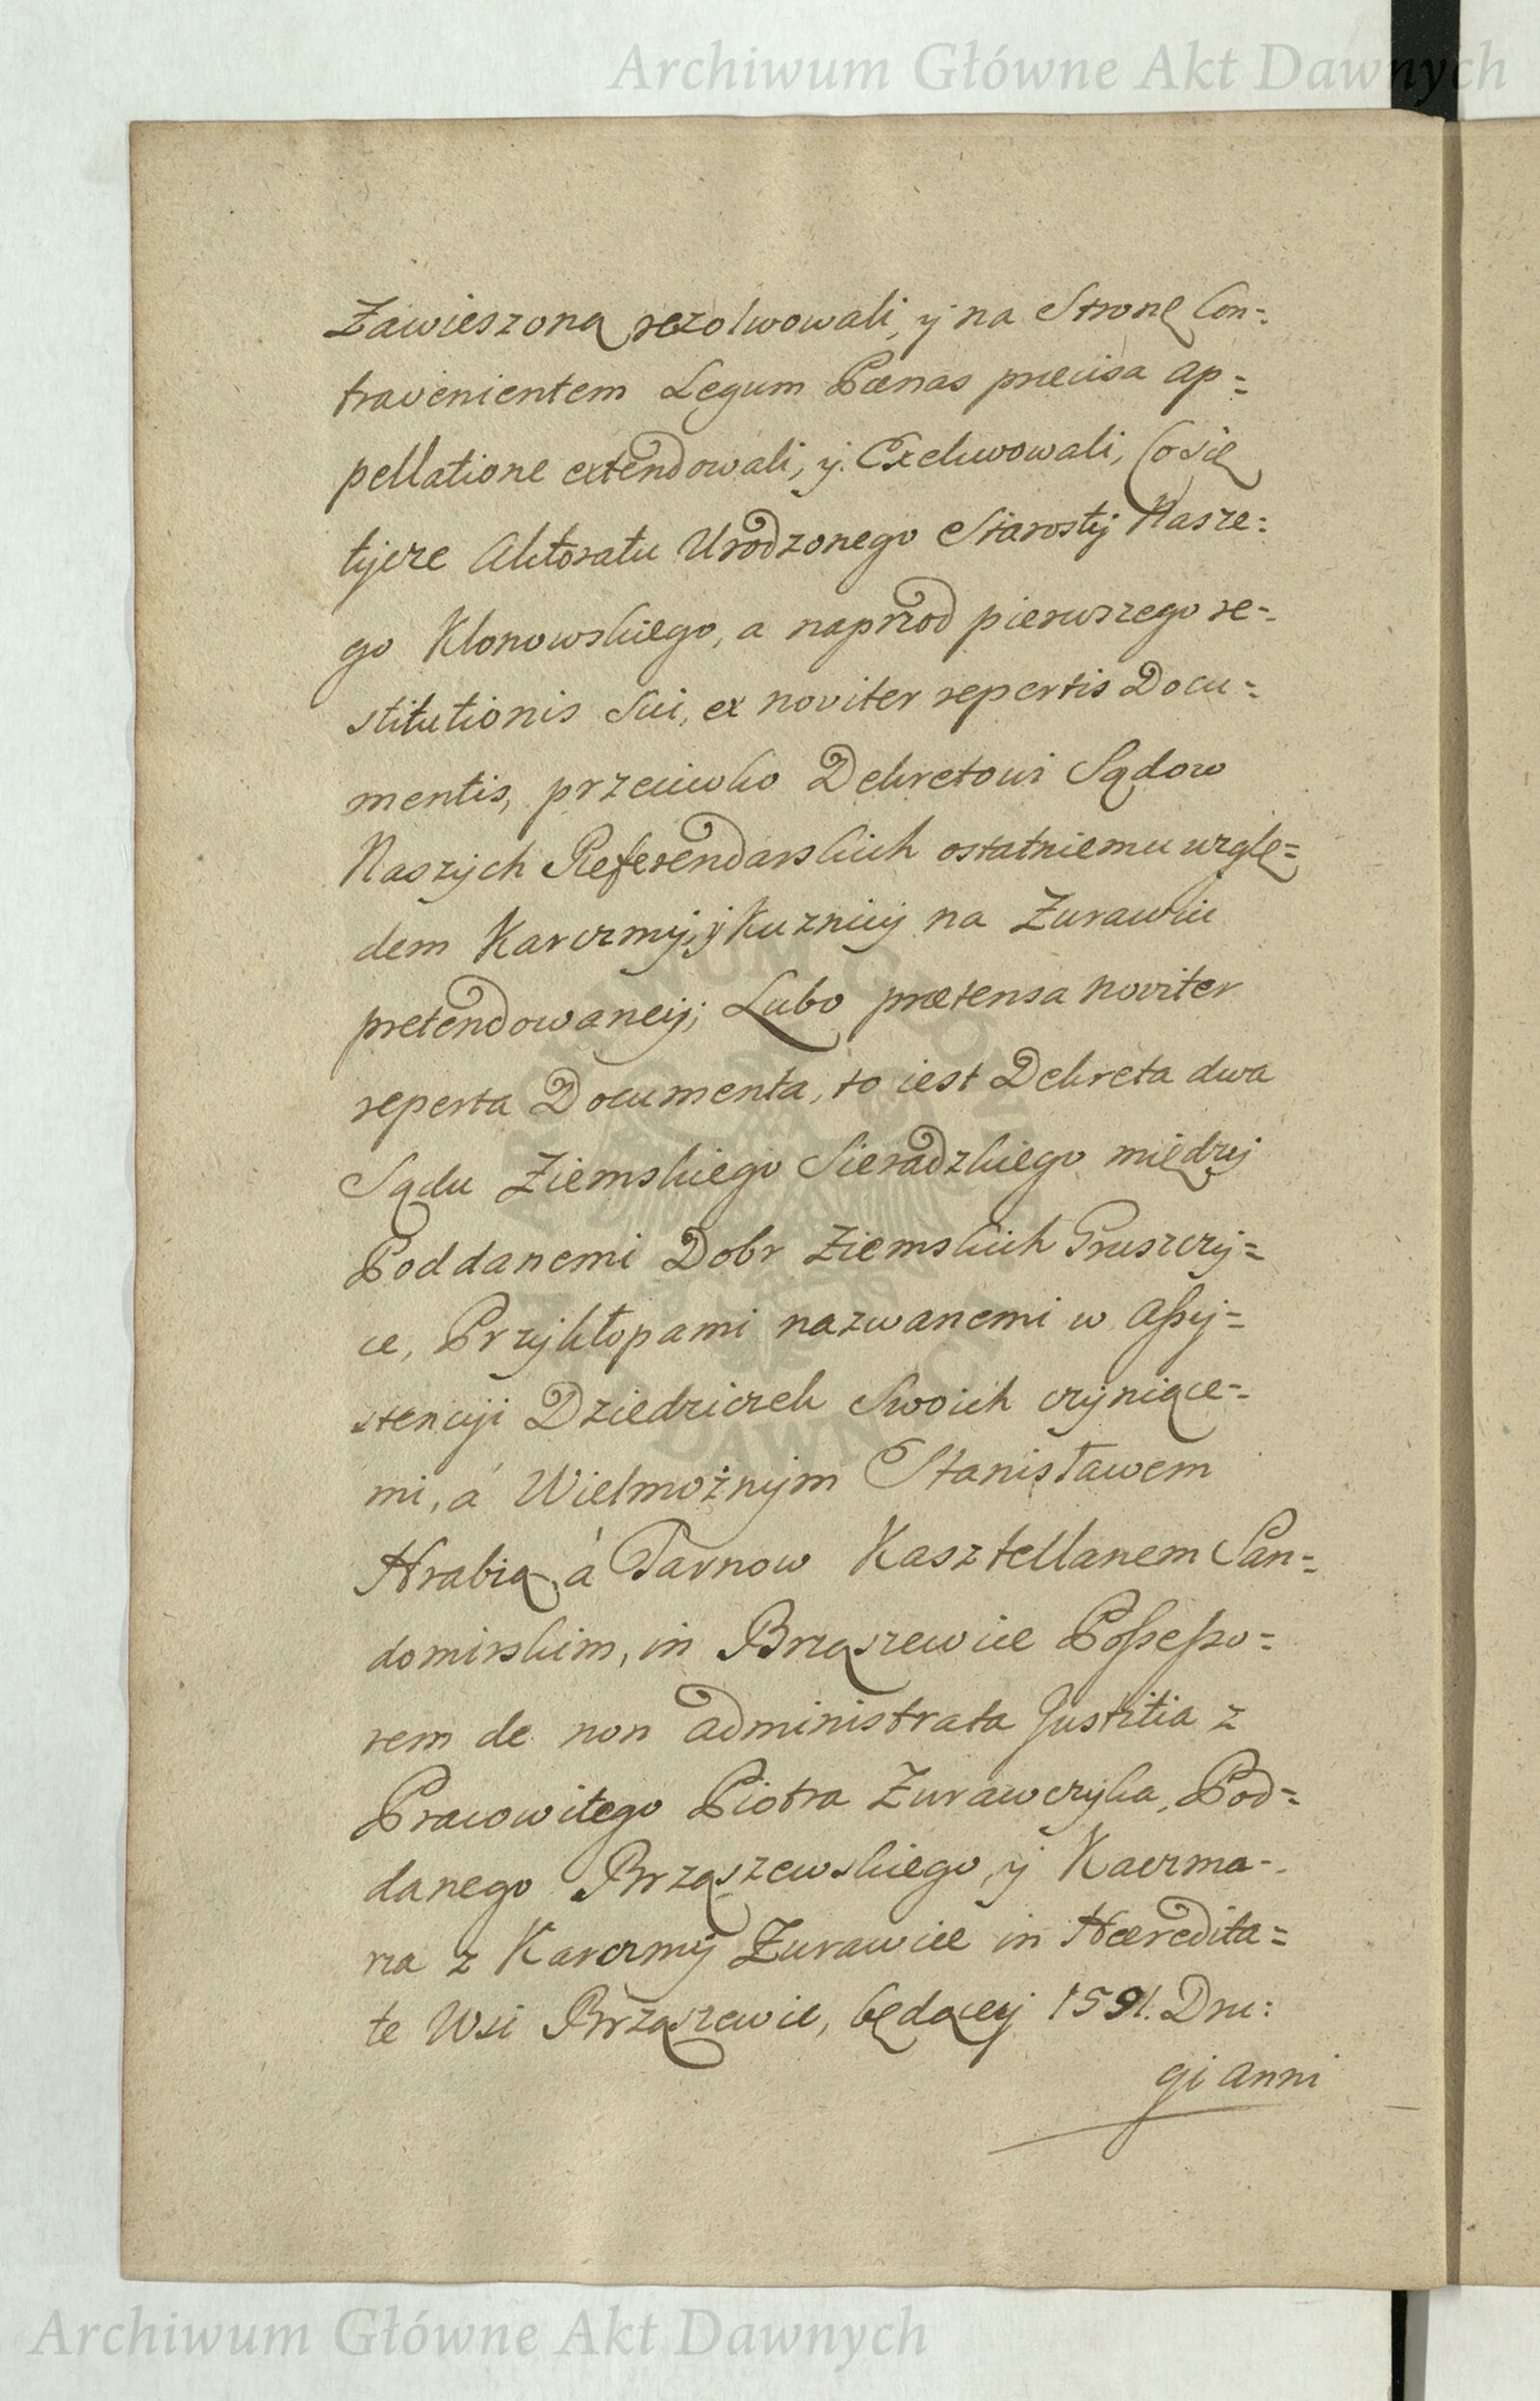 Archiwum Główne Akt Dawnych
Zawieszoną rezolwowali, y na Stronę Con-
travenientem Legum Pœnas præcisa ap=
pellatione extendowali, y. Exekwowali, Co się
tycze Aktoratu Urodzonego Starosty Nasze=
go Klonowskiego, a naprzod pierwszego re-
stitutionis sui, ex noviter repertis Docu=
mentis, przeciwko Dekretowi Sądow
Naszych Referendarskich ostatniemu wzglę=
dem Karczmy, y Kuznicy na Zurawiu
pretendowaney; Lubo prætensa noviter
reperta Documenta, to iest Dekreta dwa
Sądu Ziemskiego Sieradzkiego między
Poddanemi Dobr Ziemskich Gruszczy=
ce, Przykłopami nazwanemi w Assy=
stencyi Dziedziczek Swoich czyniące-
mi, á Wielmożnym Stanisławem
Hrabią á Tarnow Kasztellanem San=
domirskim, in Brząszewice Possesso=
rem de non administrata Justitia z
Pracowitego Piotra Zurawczyka, Pod=
danego Brząszewskiego, y Kaczma-
rza z Karczmy Zurawice in Hæredita=
te Wsi Brząszewic, będącey 1591. Dru:
gi anni
ARCHIWUM GŁÓWNE AKT DAWNYCH
Archiwum Główne Akt Dawnych